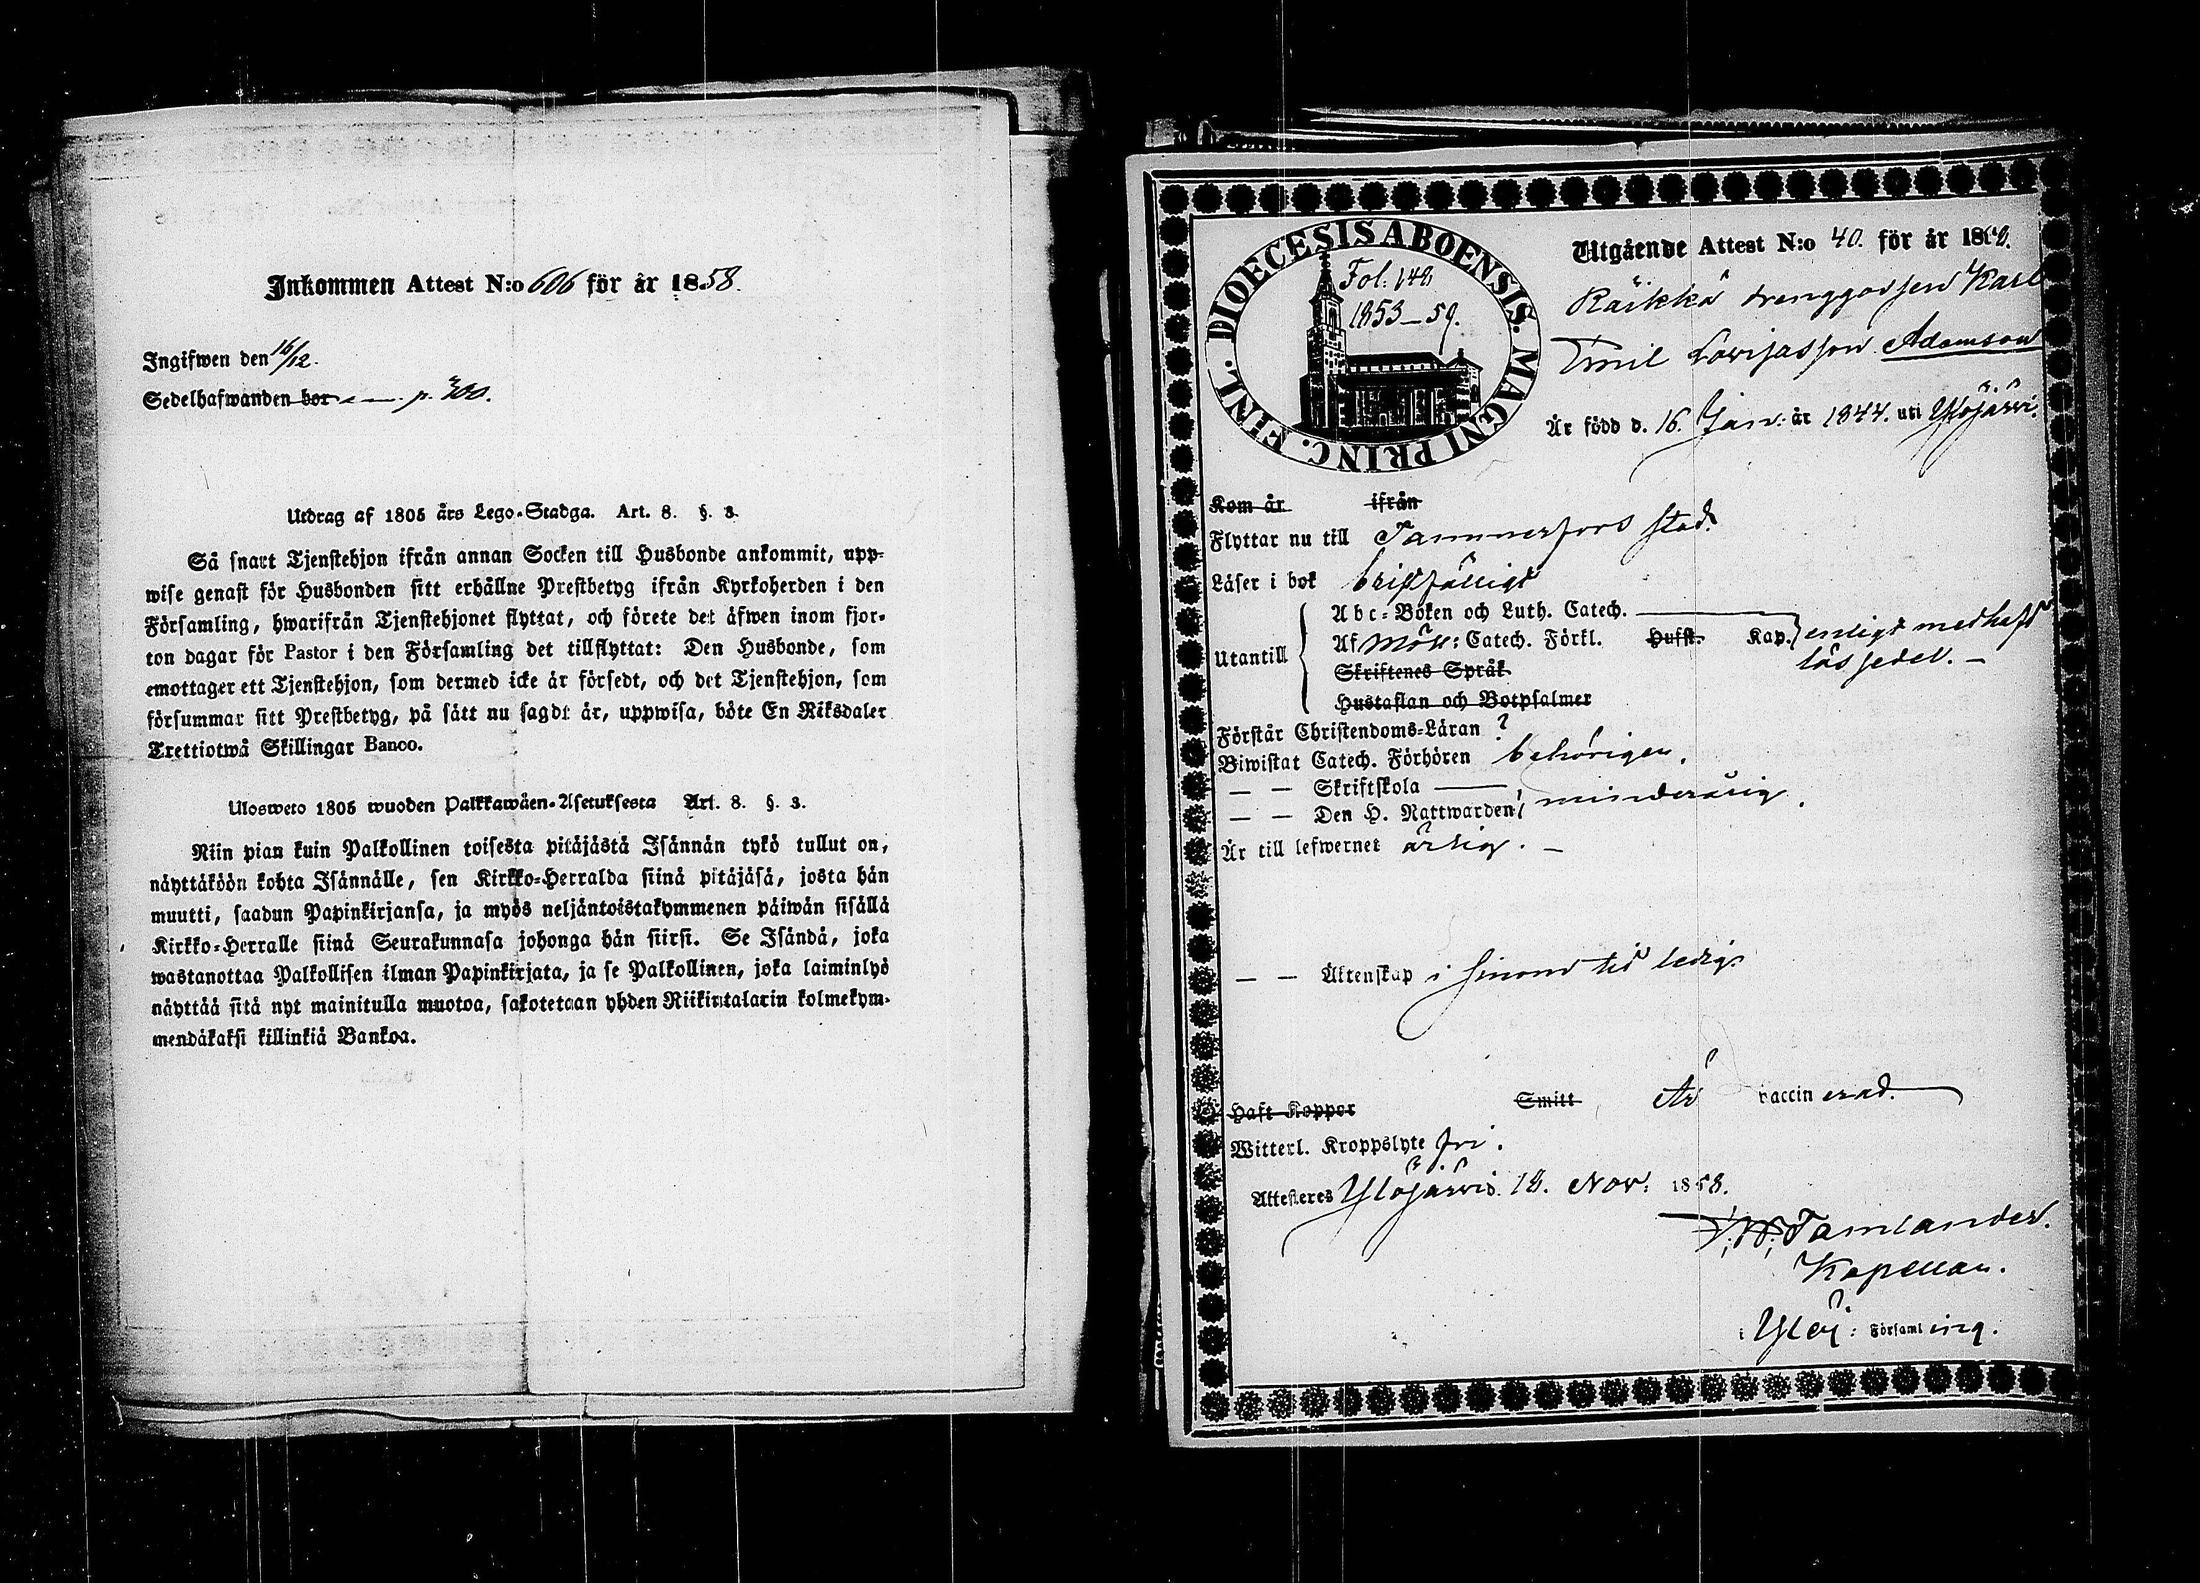 Inkommen Attest N:o 606 för år 1858.
Ingifwen den 16/12.
Sedelhafwanden bor p. 300.
Utdrag af 1805 års Lego-Stadga. Art. 8. §. 3.
Så snart Tjenstehjon ifrån annan Socken till Husbonde ankommit, upp-
wise genast för Husbonden sitt erhållne Prestbetyg ifrån Kyrkoherden i den
Församling, hwarifrån Tjenstehjonet flyttat, och förete det äfwen inom fjor-
ton dagar för Pastor i den Församling det tillflyttat: Den Husbonde, som
emottager ett Tjenstehjon, som dermed icke är försedt, och det Tjenstehjon, som
försummar sitt Prestbetyg, på sätt nu sagdt är, uppwisa, böte En Riksdaler
Trettiotwå Skillingar Banco.
Ulosweto 1805 wuoden Palkkawäen-Asetuksesta Art. 8. §. 3.
Niin pian kuin Palkollinen toisesta pitäjästä Isännän tykö tullut on,
näyttäköön kohta Isännälle, sen Kirkko-Herralda siinä pitäjäsä, josta hän
muutti, saadun Papinkirjansa, ja myös neljäntoistakymmenen päiwän sisällä
Kirkko-Herralle siinä Seurakunnasa johonga hän siirsi. Se Isändä, joka
wastanottaa Palkollisen ilman Papinkirjata, ja se Palkollinen, joka laiminlyö
näyttää sitä nyt mainitulla muotoa, sakotetaan yhden Riikintalarin kolmekym-
mendäkaksi killinkiä Bankoa.
DIOECESIS ABOENSIS. MAGNI PRINC. FINL.
Fol: 148
1853–59.
Utgående Attest N:o 40. för år 18
Räikkä drenggossen Karl
Emil Lovisasson Adamson
Är född d. 16. Jan: år 1844. uti Ylöjärvi.
Kom år ifrån
Flyttar nu till Tammerfors stad.
Läser i bok bristfälligt
Utantill
Abc-Boken och Luth. Catech.
Af Möll: Catech. Förkl. Hufst. Kap. enligt medhafd
läs sedel. –
Skriftenes Språk
Hustaflan och Botpsalmer
Förstår Christendoms-Läran ?
Biwistat Catech. Förhören behörigen.
— — Skriftskola
— — Den H. Nattwarden minderårig.
Är till lefwernet ärlig. –
— — Äktenskap i sinom tid ledig.
Haft Koppor Smitt Är vaccinerad.
Witterl. Kroppslyte fri.
Attesteres Ylöjärvi d. 18. Nov: 1858.
Tamlander.
Kapellan.
i Ylöj: Församling.